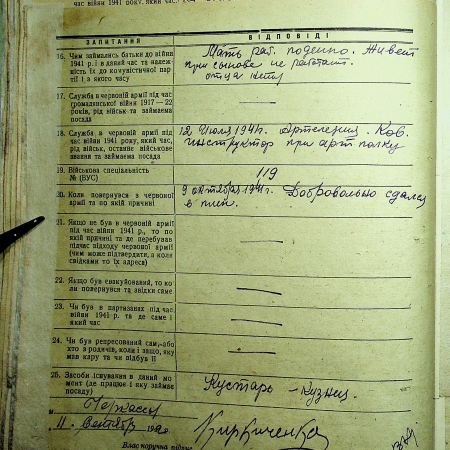 час війни 1941 року,
ЗАПИТАННЯ
ВІДПОВІДІ
16. Чим займались батьки до війни
1941 р. і в даний час та належ-
ність їх до комуністичної пар-
тії і з якого часу
Мать раб. поденно. Живет
при сынове не работает.
отца нет
17. Служба в червоній армії під час
громадянської війни 1917 — 22
років, рід військ та займаема
посада
18. Служба в червоній армії під
час війни 1941 року, який час,
рід військ, останнє військове
звання та займаема посада
12 Июля 1941 г. Артелерия. Ков.
инструктор при арт полку
19. Військова спеціальність
№ (ВУС)
119
20. Коли повернувся з червоної
армії та по якій причині
9 октября 1941 г. Добровольно сдался
в плен.
21. Якщо не був в червоній армії
під час війни 1941 р., то по
якій причині та де перебував
підчас підходу червоної армії
(чим може підтвердити, а коли
свідками то їх адреса)
22. Якщо був евакуйований, то ко-
ли повернувся та звідки саме
23. Чи був в партизанах під час
війни 1941 р. та де саме і
який час
24. Чи був репресований сам, або
хто з родичів, коли і защо, яку
мав кару та чи відбув її
25. Засоби існування в даний мо-
мент (де працює і яку займає
посаду)
Кустарь - кузнец.
Черкассы
" 11 " Сентябр 194
Кирниченко
Власноручна підпис